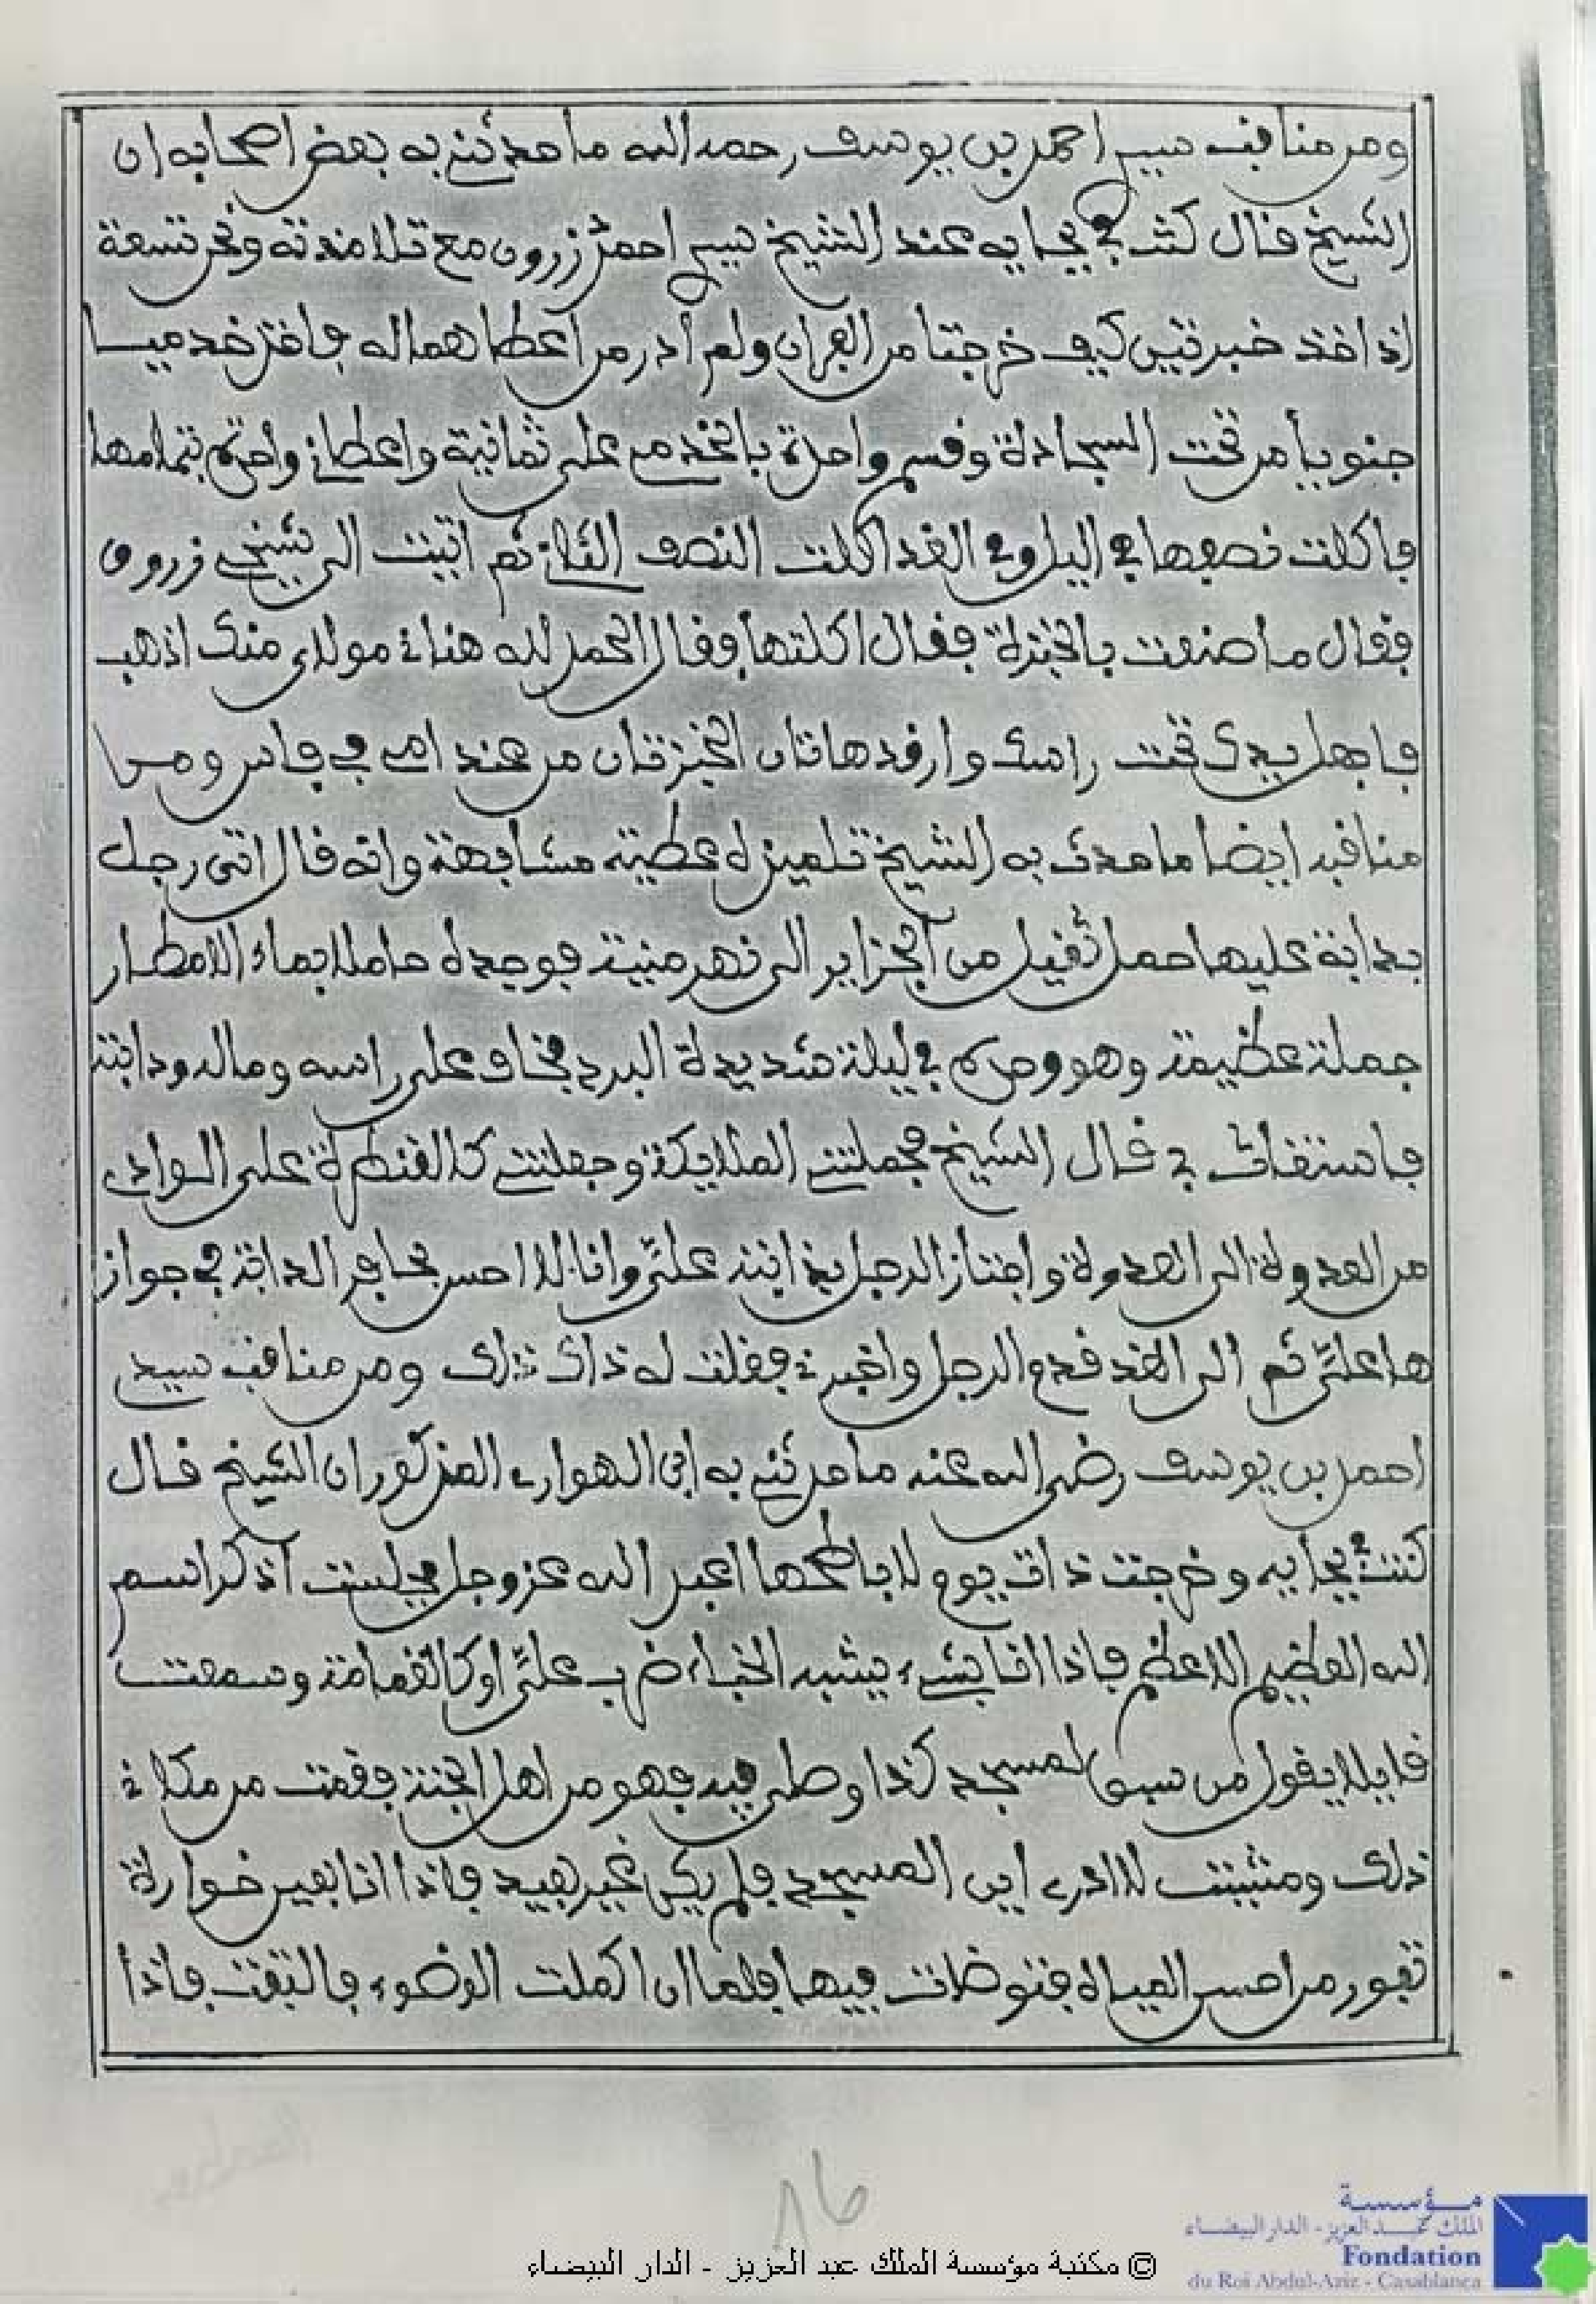 ومن مناقب سيد احمد بن يوسف رحمه الله ما حدثني به بعض اصحابه ان
الشيخ قال كنت في بجايه عند الشيخ سيد احمد زروق مع تلامذته ونحن تسعة
اذ اخذ خبزتين كيف خرجتا من الفران ولم أدر من أعطاهما له فاخذ خدميا
جنويا من تحت السجادة وقسم واحدة بالخدمي على ثمانية واعطاني واحدة بتمامها
فاكلت نصفها في اليل وفي الغد اكلت النصف الثاني ثم اتيت الى شيخي زروق
فقال ما صنعت بالخبزة فقال اكلتها فقال الحمد لله هناءة مولاي منك اذهب
فاجعل يدك تحت راسك وارفد هاتان الخبزتان من عند امي في فاس ومن
مناقبه ايضا ما حدث به الشيخ تلميذه عطية مشابهة وانه قال اتى رجل
بدابة عليها حمل ثفيل من الجزاير الى نهر منية فوجده حاملا بماء الامطار
جملة عظيمة وهو وحده في ليلة شديدة البرد فخاف على راسه وماله ودابته
فاستغاث بي قال الشيخ فحملتني الملايكة وجعلتني كالقنطرة على الوادي
من العدوة الى العدوة واجتاز الرجل بدابته علىّ وانا لاحس بحافر الدابة في جواز
ها علىّ ثم الى الغد قدم الرجل واخبرني فقلت له ذاك ذلك ومن مناقب سيد
احمد بن يوسف رضي الله عنه ما حدثني به ابي الهواري المذكور ان الشيخ قال
كنت في بجايه وخرجت ذات يوم لاباطحها اعبد الله عز وجل فجلست أذكر اسم
الله العظيم الاعظم فاذا انا بشيء يشبه الخباء ضرب علىّ او كالغمامة وسمعت
قايلا يقول من سبق لمسجد كذا وصلى فيه فهو من اهل الجنة فقمت من مكاني
ذلك ومشيت لا ادري اين المسجد فلم يكن غير بعيد فاذا انا بعين خوارة
تفور من احسن المياه فتوضات فيها فلما ان اكملت الوضوء فالتفت فاذا
٨٦
© مكتبة مؤسسة الملك عبد العزيز - الدار البيضاء
مؤسسة
الملك عبد العزيز - الدار البيضاء
Fondation
du Roi Abdul-Aziz - Casablanca